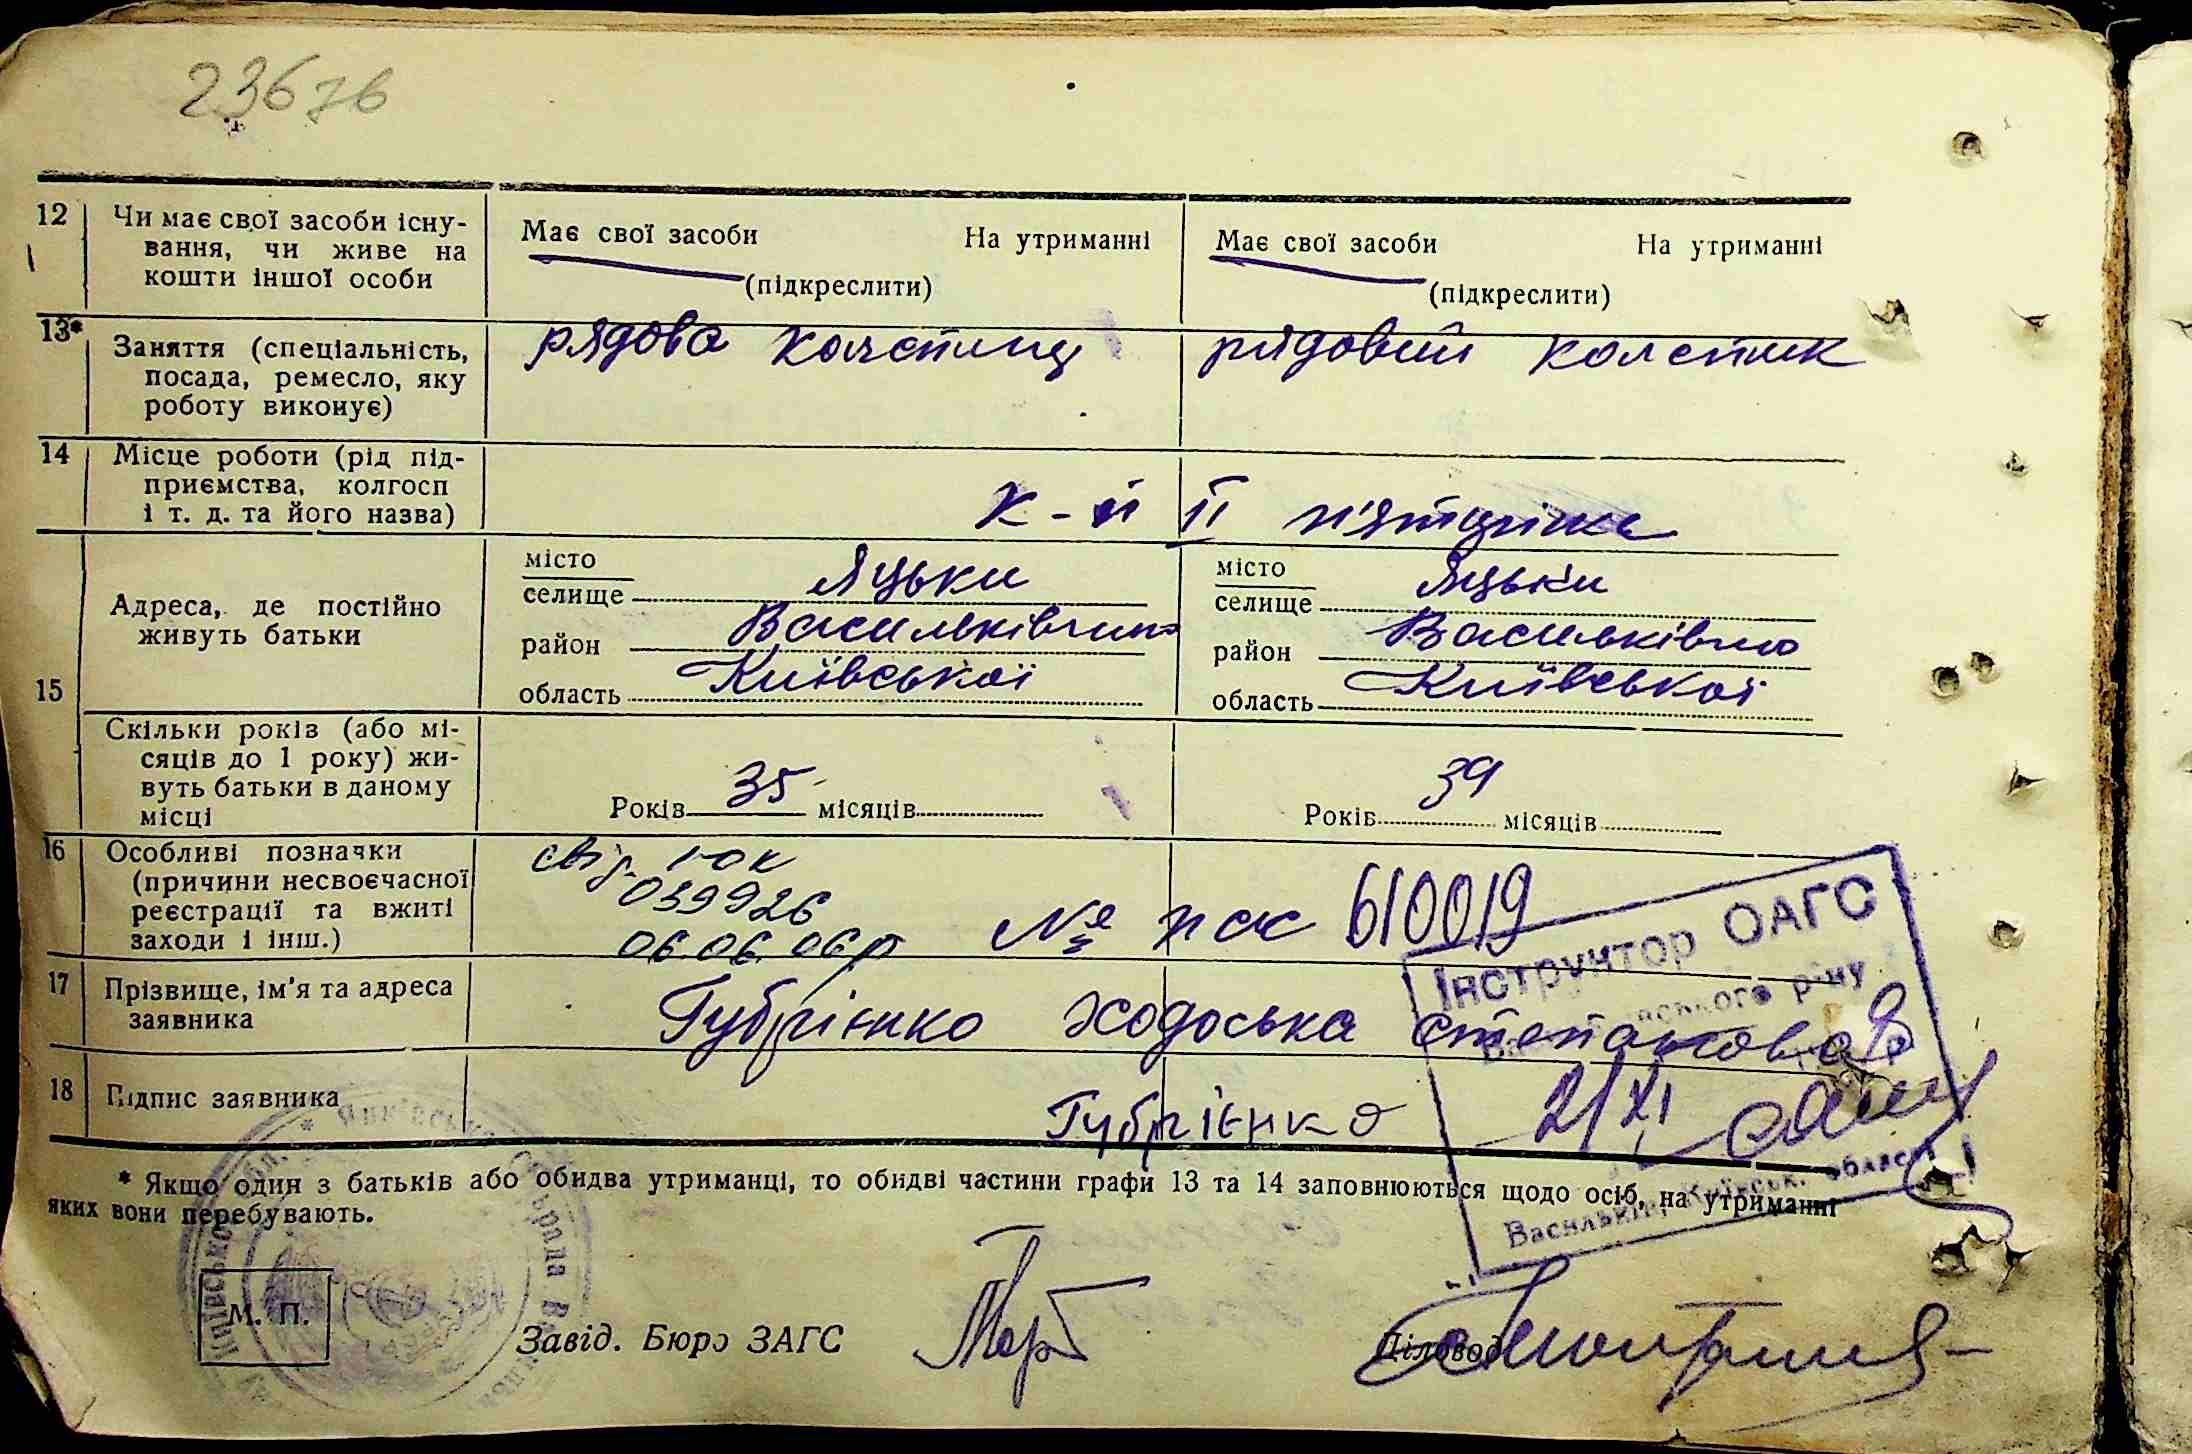 23676
12 Чи має свої засоби існу-
вання, чи живе на
кошти іншої особи
Має свої засоби На утриманні
(підкреслити)
Має свої засоби На утриманні
(підкреслити)
13* Заняття (спеціальність,
посада, ремесло, яку
роботу виконує)
рядова
рядовий
14 Місце роботи (рід під-
приємства, колгосп
і т. д. та його назва)
к-п II п'ятирічка
15 Адреса, де постійно
живуть батьки
місто
селище Яцьки
район
область Київської
місто
селище Яцьки
район
область Київської
Скільки років (або мі-
сяців до 1 року) жи-
вуть батьки в даному
місці
Років 35 місяців
Років 39 місяців
16 Особливі позначки
(причини несвоєчасної
реєстрації та вжиті
заходи і інш.)
свід. I-ОК
039926
06.06.06р
№ 610019
17 Прізвище, ім'я та адреса
заявника
Губрієнко Ходоська Степановна
18 Підпис заявника
Губрієнко
Інструктор ОАГС
21/XI
* Якщо один з батьків або обидва утриманці, то обидві частини графи 13 та 14 заповнюються щодо осіб, на утриманні
яких вони перебувають.
М. П.
Завід. Бюро ЗАГС
Діловод